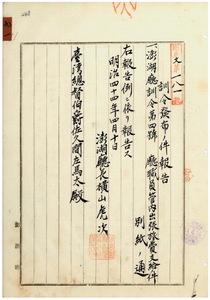 文第一八一
訓令發布ノ件報告
一、澎湖廳訓令第四號 廳職員管內出張旅費支給件
別紙ノ通
右報告例ニ依リ報告ス
明治四十四年四月十日
澎湖廳長橫山虎次
臺灣總督伯爵佐久間左馬太殿